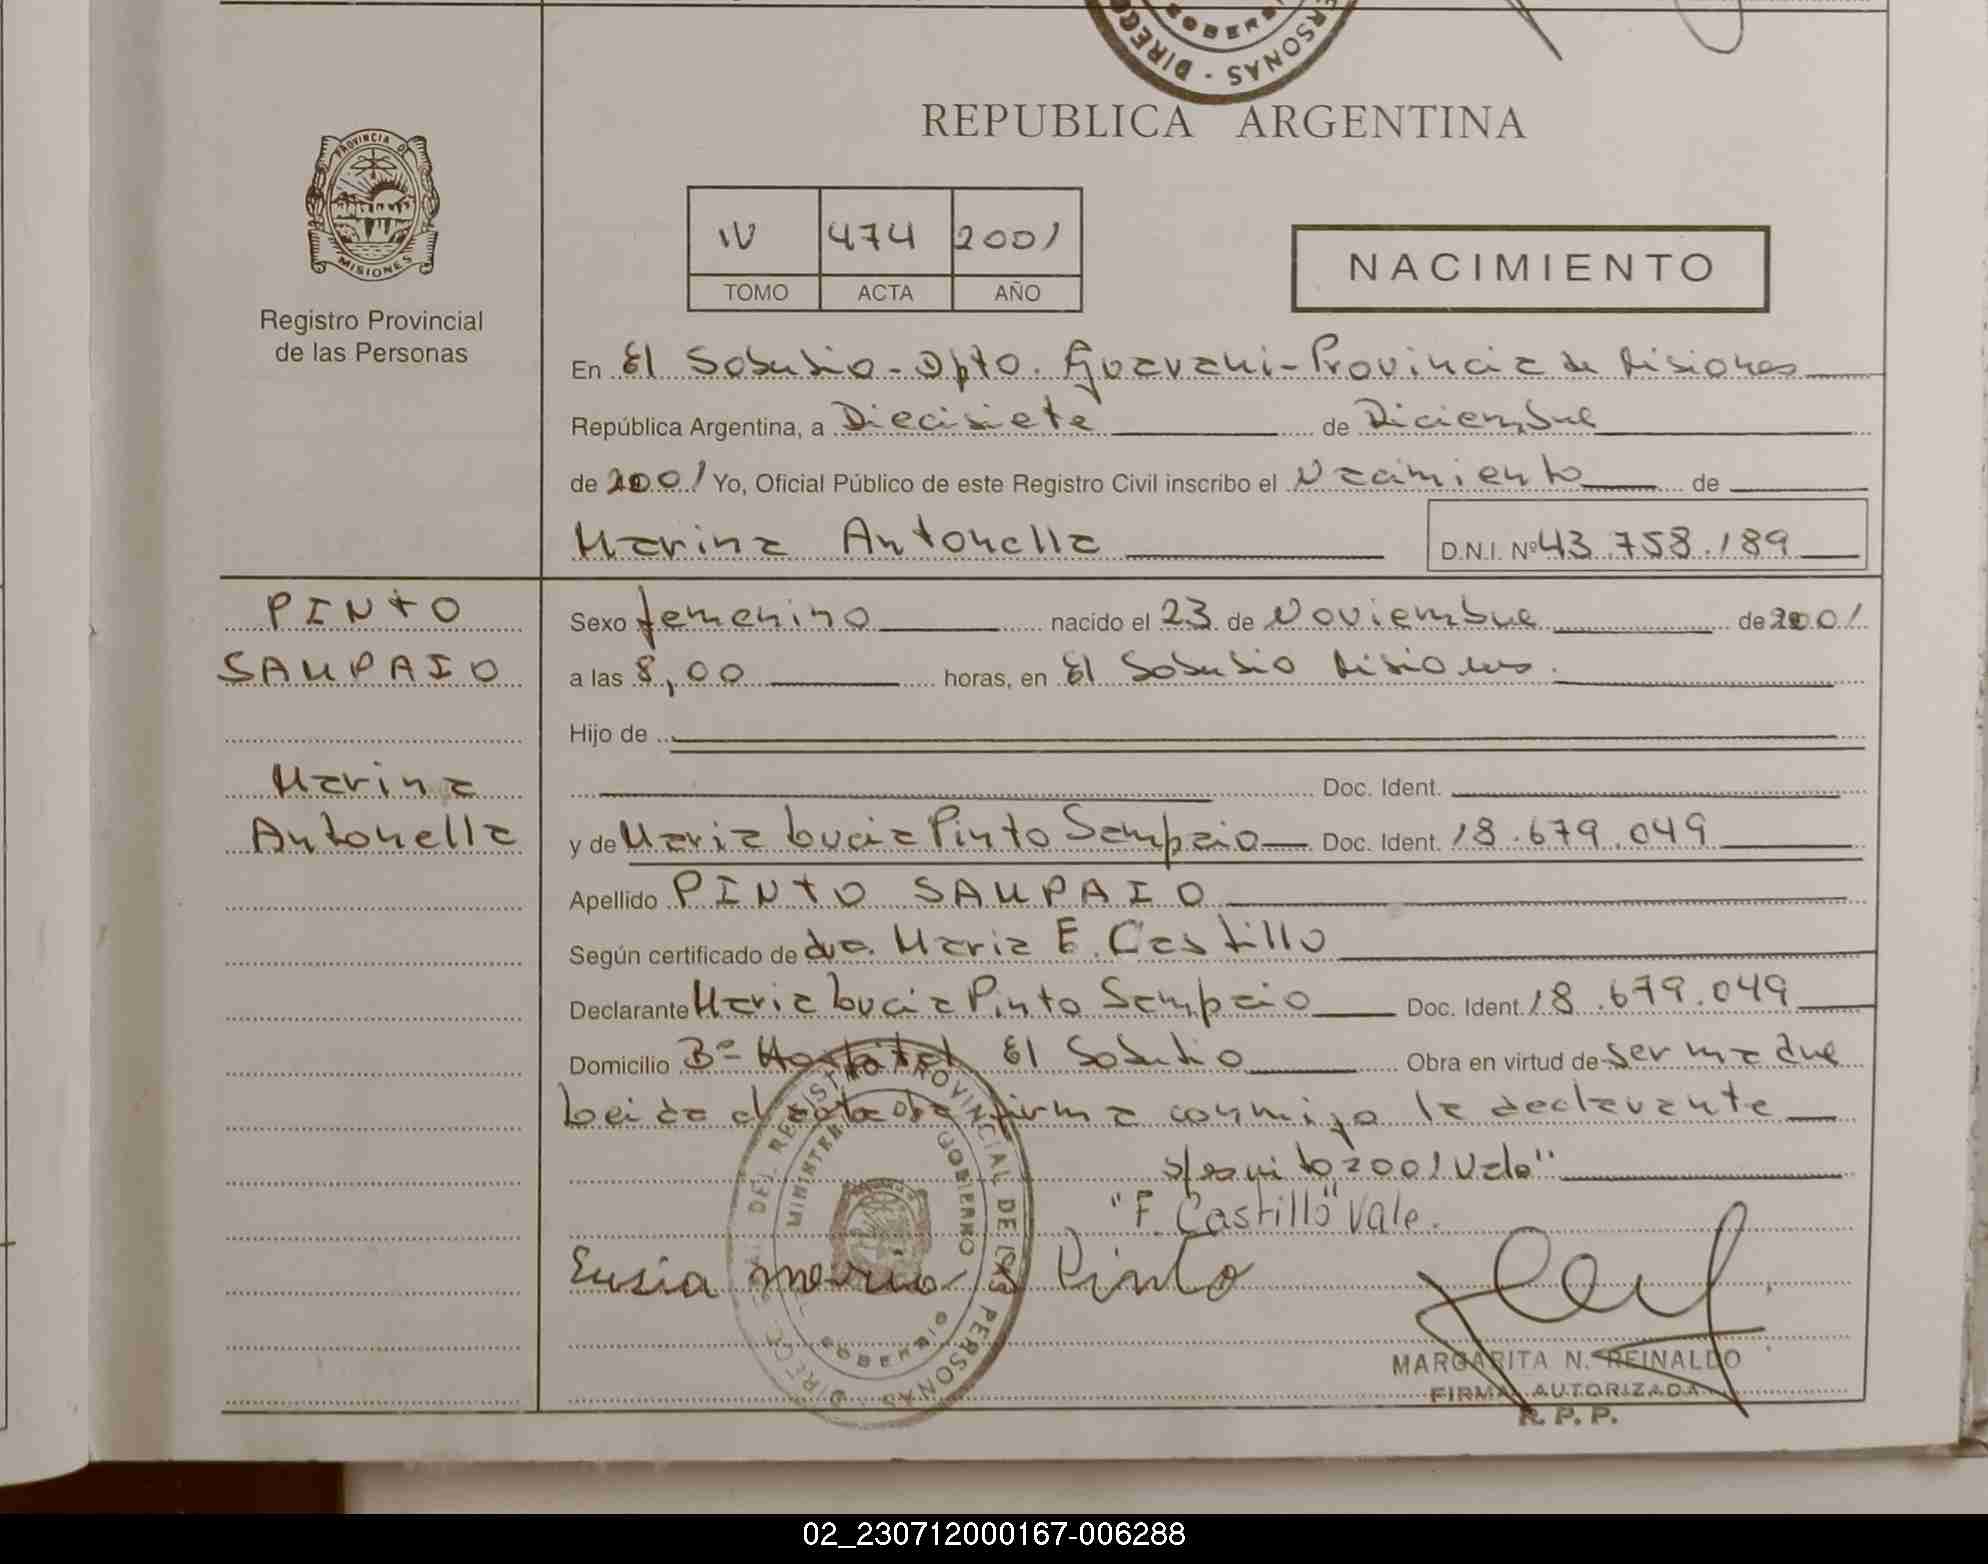 DIREC
SOBER
PERSONAS
REPUBLICA ARGENTINA
PROVINCIA D
MISIONES
Registro Provincial
de las Personas
IV 474 2001
TOMO ACTA AÑO
NACIMIENTO
En El Soberbio - Dpto. Guarani - Provincia de Misiones
República Argentina, a Diecisiete de Diciembre
de 2001 Yo, Oficial Público de este Registro Civil inscribo el Nacimiento de
Marina Antonella D.N.I. Nº 43.758.189
PINTO
SAMPAIO
Marina
Antonella
Sexo femenino nacido el 23 de Noviembre de 2001
a las 8,00 horas, en El Soberbio Misiones.
Hijo de
Doc. Ident.
y de Maria Lucia Pinto Sampaio Doc. Ident. 18.679.049
Apellido PINTO SAMPAIO
Según certificado de dra. Maria E. Castillo
Declarante Maria Lucia Pinto Sampaio Doc. Ident. 18.679.049
Domicilio Bº Hospital El Soberbio Obra en virtud de ser madre
Leida el acta firma conmigo la declarante
2001 Vale"
"F. Castillo" Vale.
Pinto
DEL REGISTRO PROVINCIAL DE LAS PERSONAS
GOBIERNO
SOBERBIO
MARGARITA N. REINALDO
FIRMA AUTORIZADA
R. P. P.
02_230712000167-006288